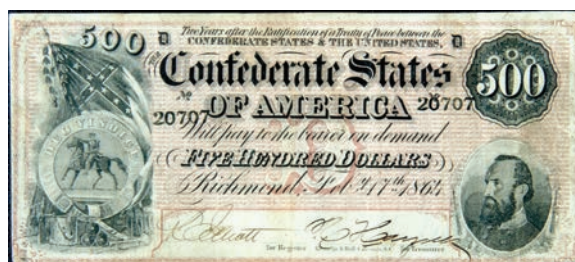 500 D Two Years after the Ratification of a Treaty of Peace between the D
CONFEDERATE STATES & THE UNITED STATES,
The Confederate States 500
No No
OF AMERICA 20707
20707
Will pay to the bearer on demand
FIVE HUNDRED DOLLARS
Richmond, Feby. 17th 1864
for Register for Treasurer